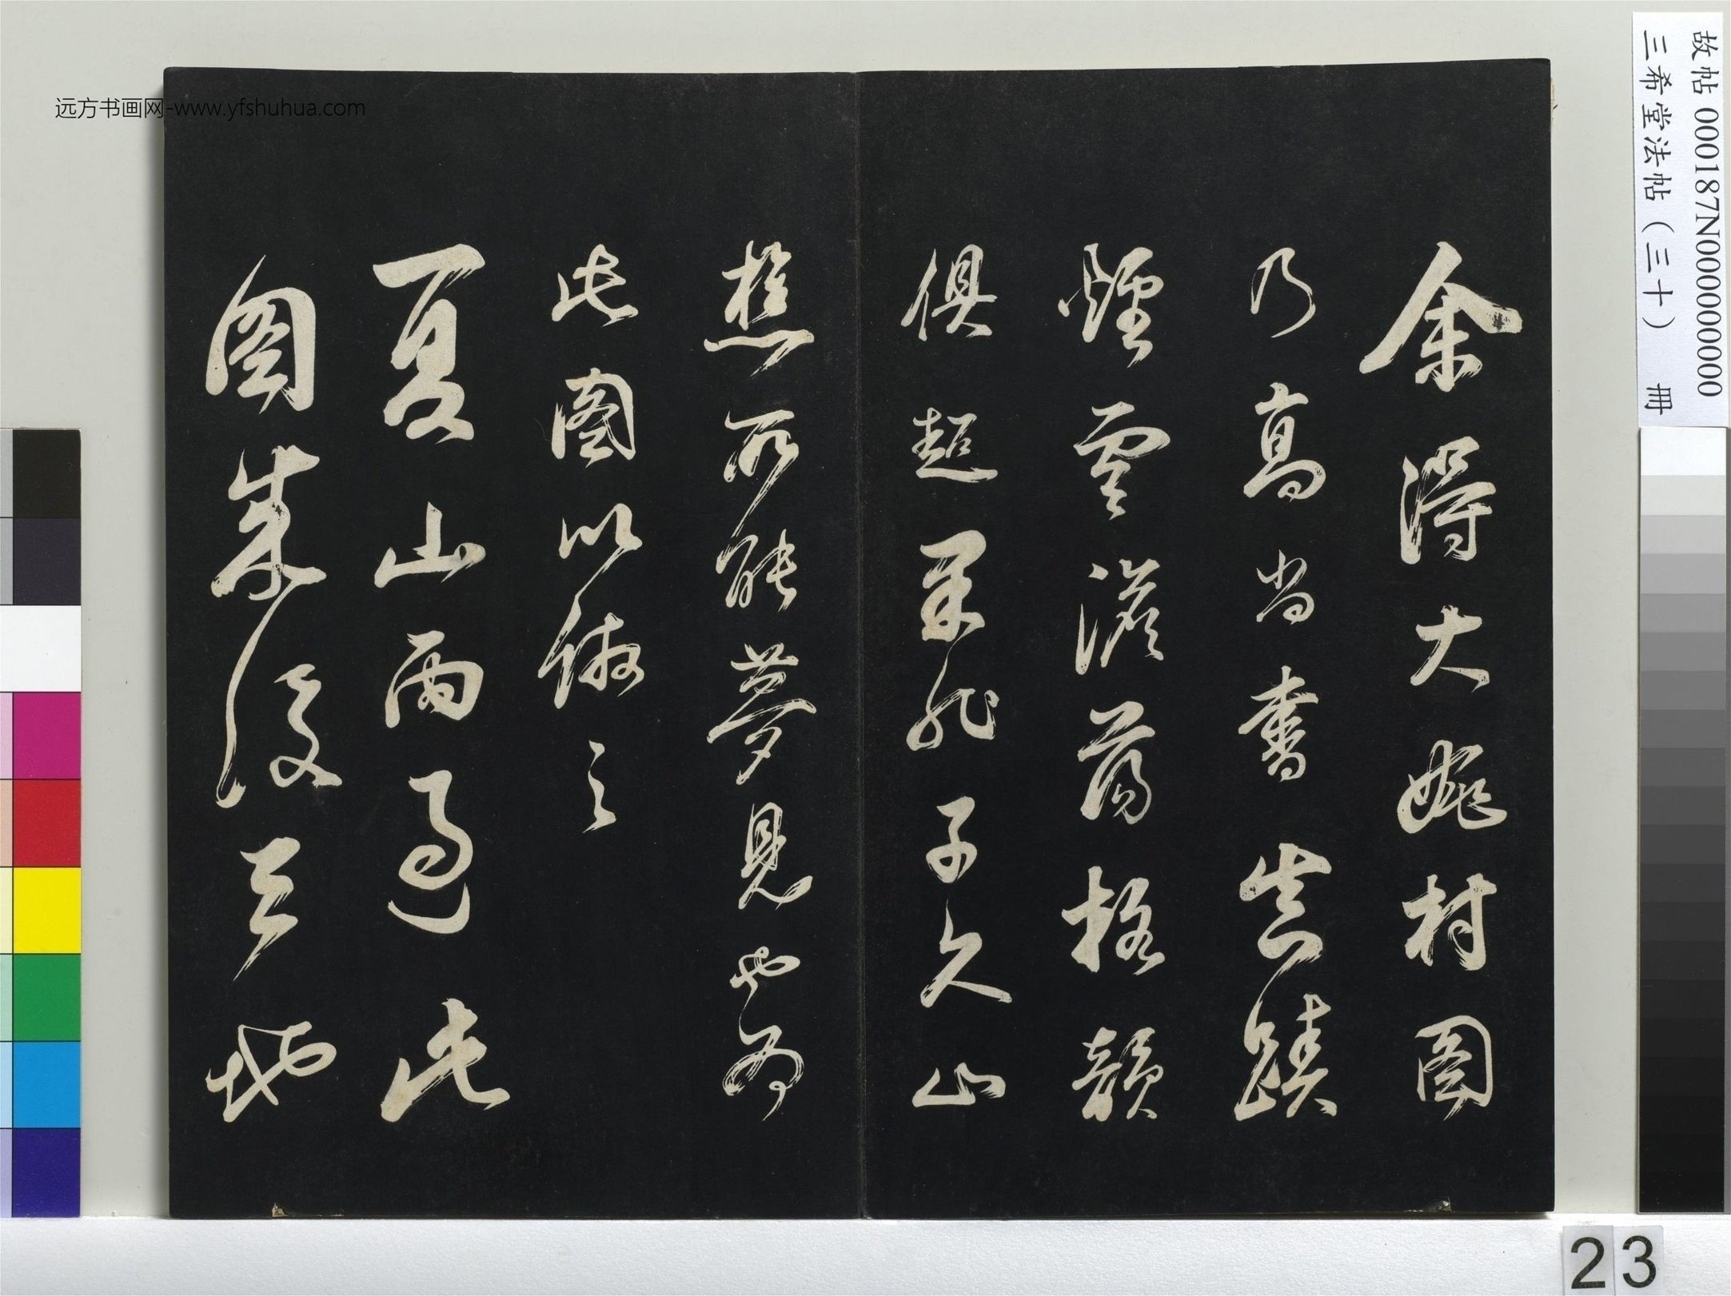 远方书画网-www.yfshuhua.com
故帖 000187N000000000
三希堂法帖（三十） 冊
余得大姚村圖
乃高尚書真蹟
煙雲澹蕩格韻
俱超果非子久山
樵所能夢見也為
此圖以倣之
夏山雨過此
圖後天地
23